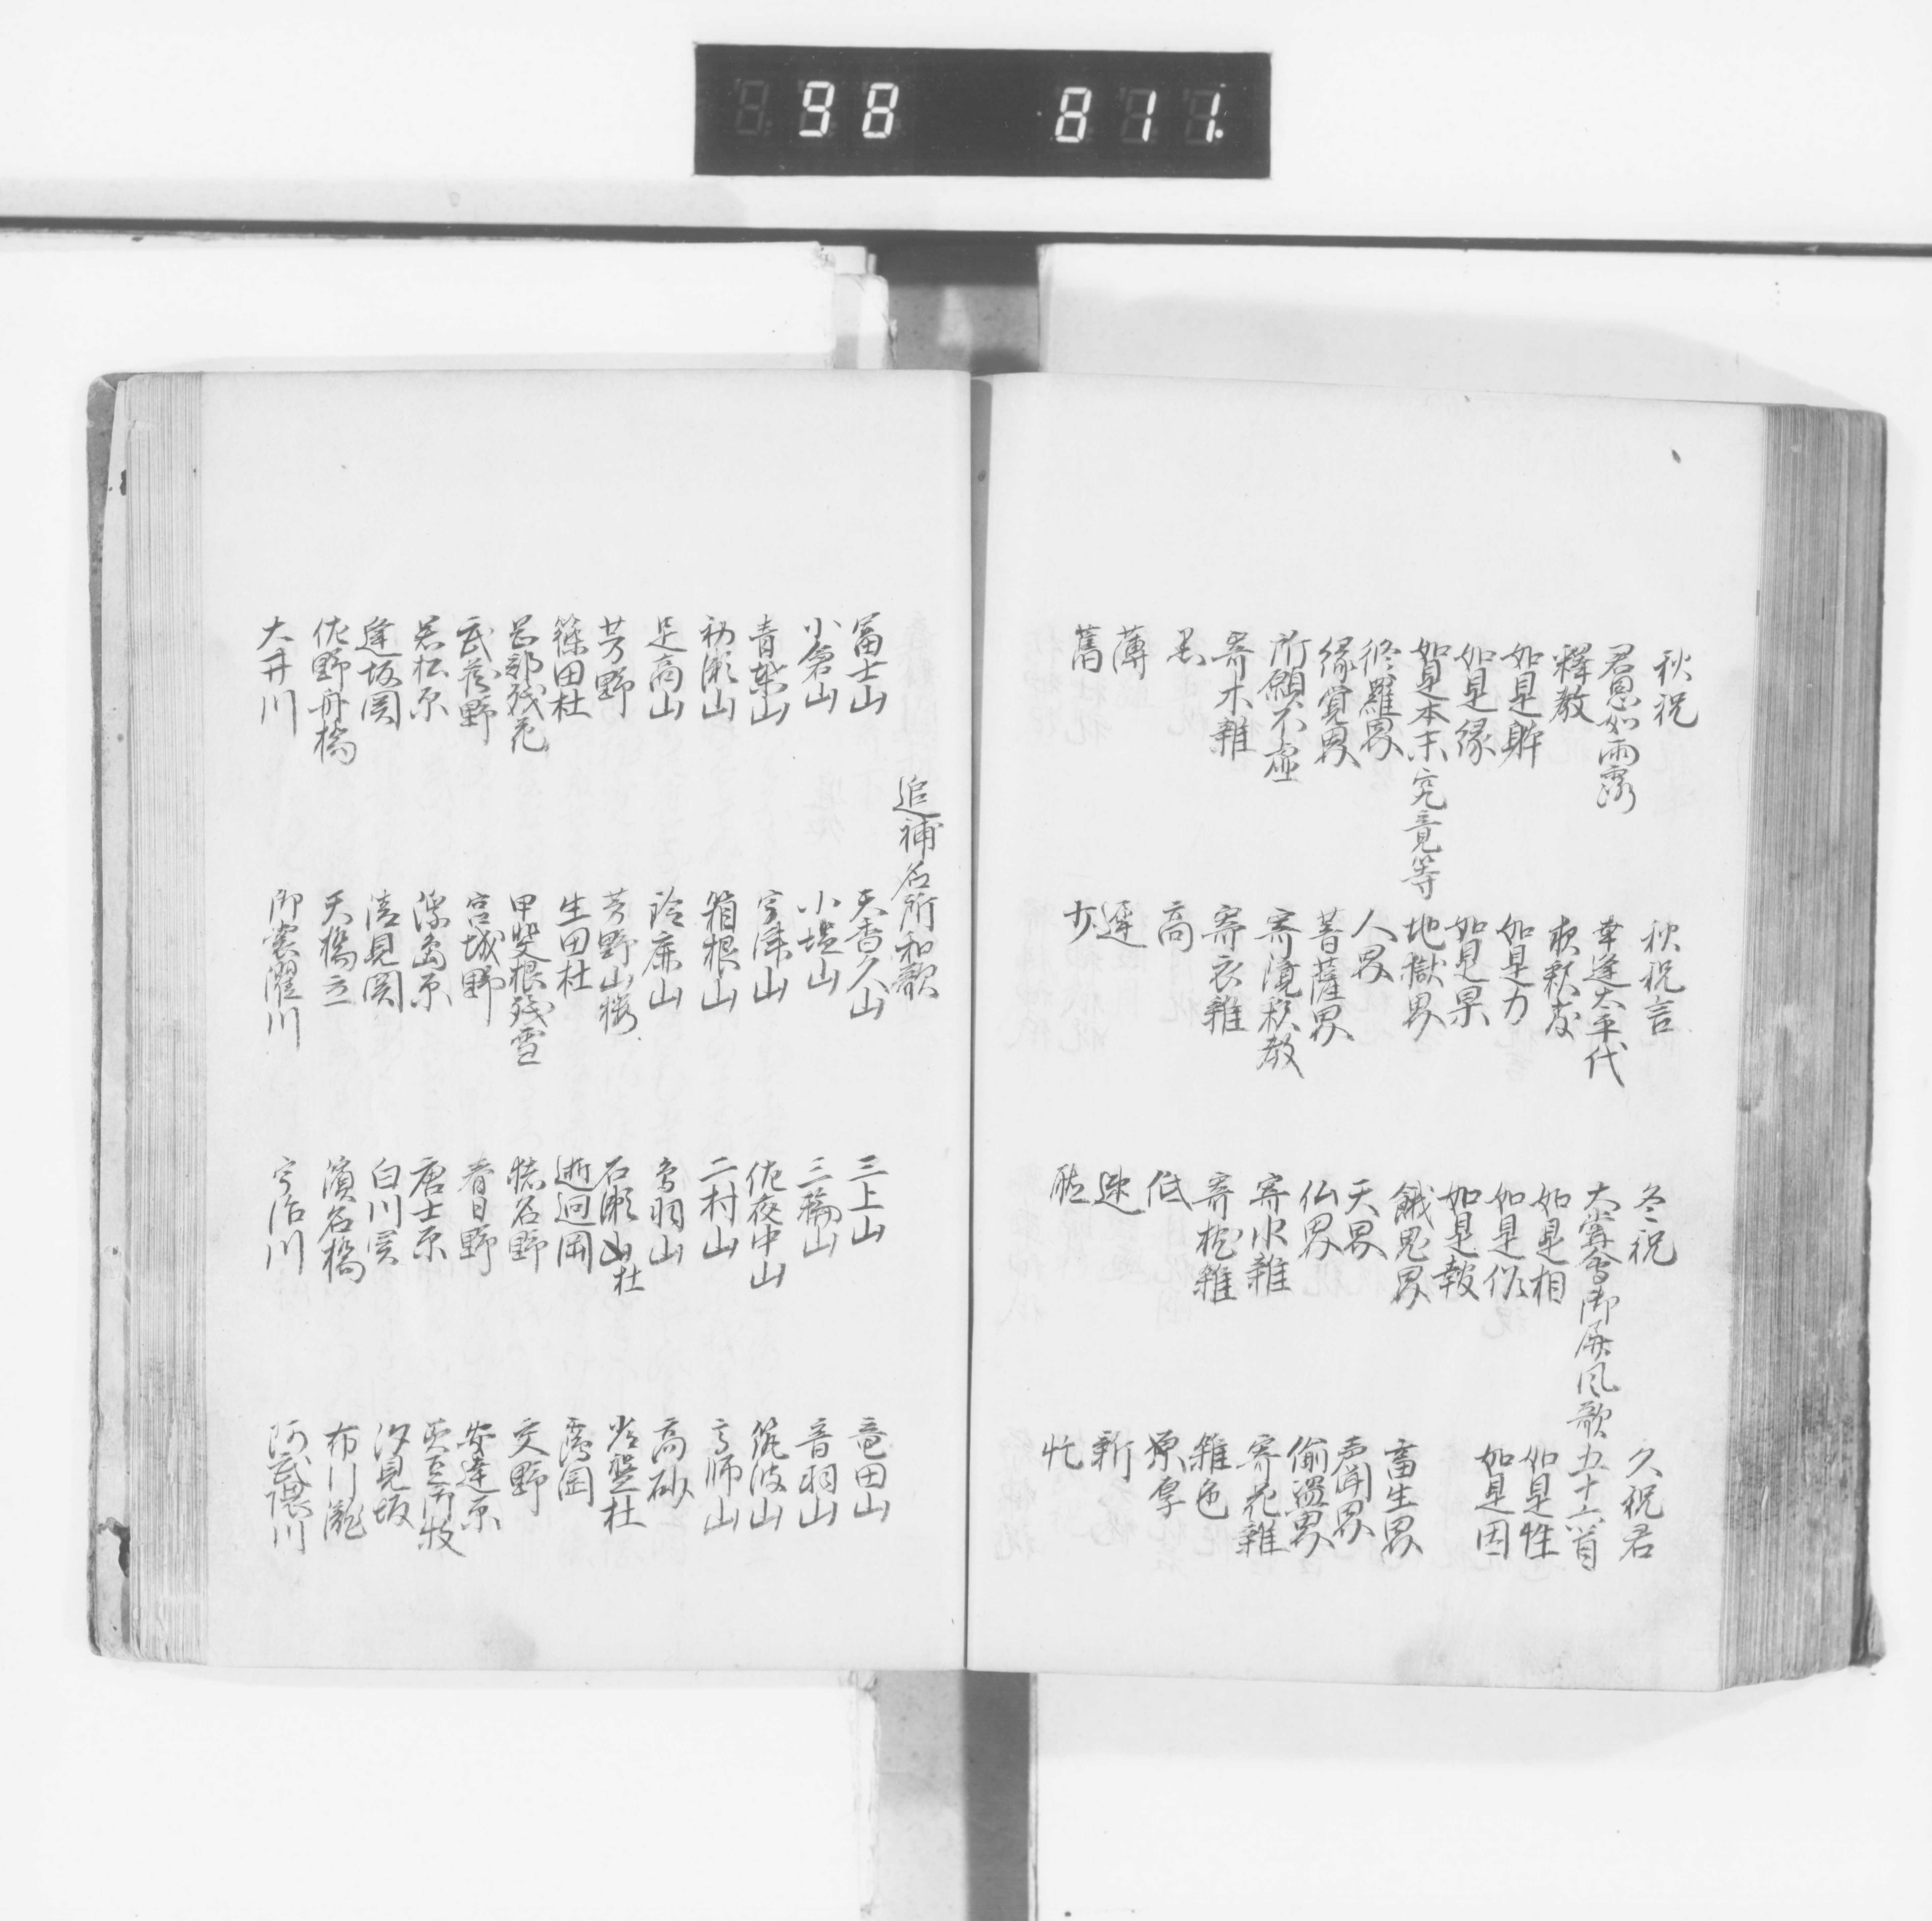 98 811.
秋祝 秋祝言 冬祝 久祝君
君恩如雨露 幸逢太平代 大嘗会御屏風歌五十六首
釋教 如是相 如是性
如是躰 如是力 如是作 如是因
如是縁 如是果 如是報
如是本末究竟等 地獄界 餓鬼界 畜生界
修羅界 人界 天界 声聞界
縁覚界 菩薩界 仏界 偸盗界
所願不虚 寄鏡釈教 寄水雑 寄花雑
寄木雑 寄衣雑 寄枕雑 雑色
高 低 厚
薄 遅 速 新
舊 少 忙
追補名所和歌
冨士山 天香久山 三上山 竜田山
小倉山 小塩山 三輪山 音羽山
青葉山 宇津山 佐夜中山 筑波山
初瀬山 箱根山 二村山 高師山
足高山 鈴鹿山 鳥羽山 高砂
芳野 芳野山桜 石瀬山杜 常盤杜
篠田杜 生田杜 逝回岡 霞岡
志賀残花 甲斐根残雪 猪名野 交野
武蔵野 宮城野 春日野 安達原
若松原 浮島原 唐土原
逢坂関 清見関 白川関 汐見坂
佐野舟橋 天橋立 濱名橋 布引瀧
大井川 御裳濯川 宇治川 阿武隈川